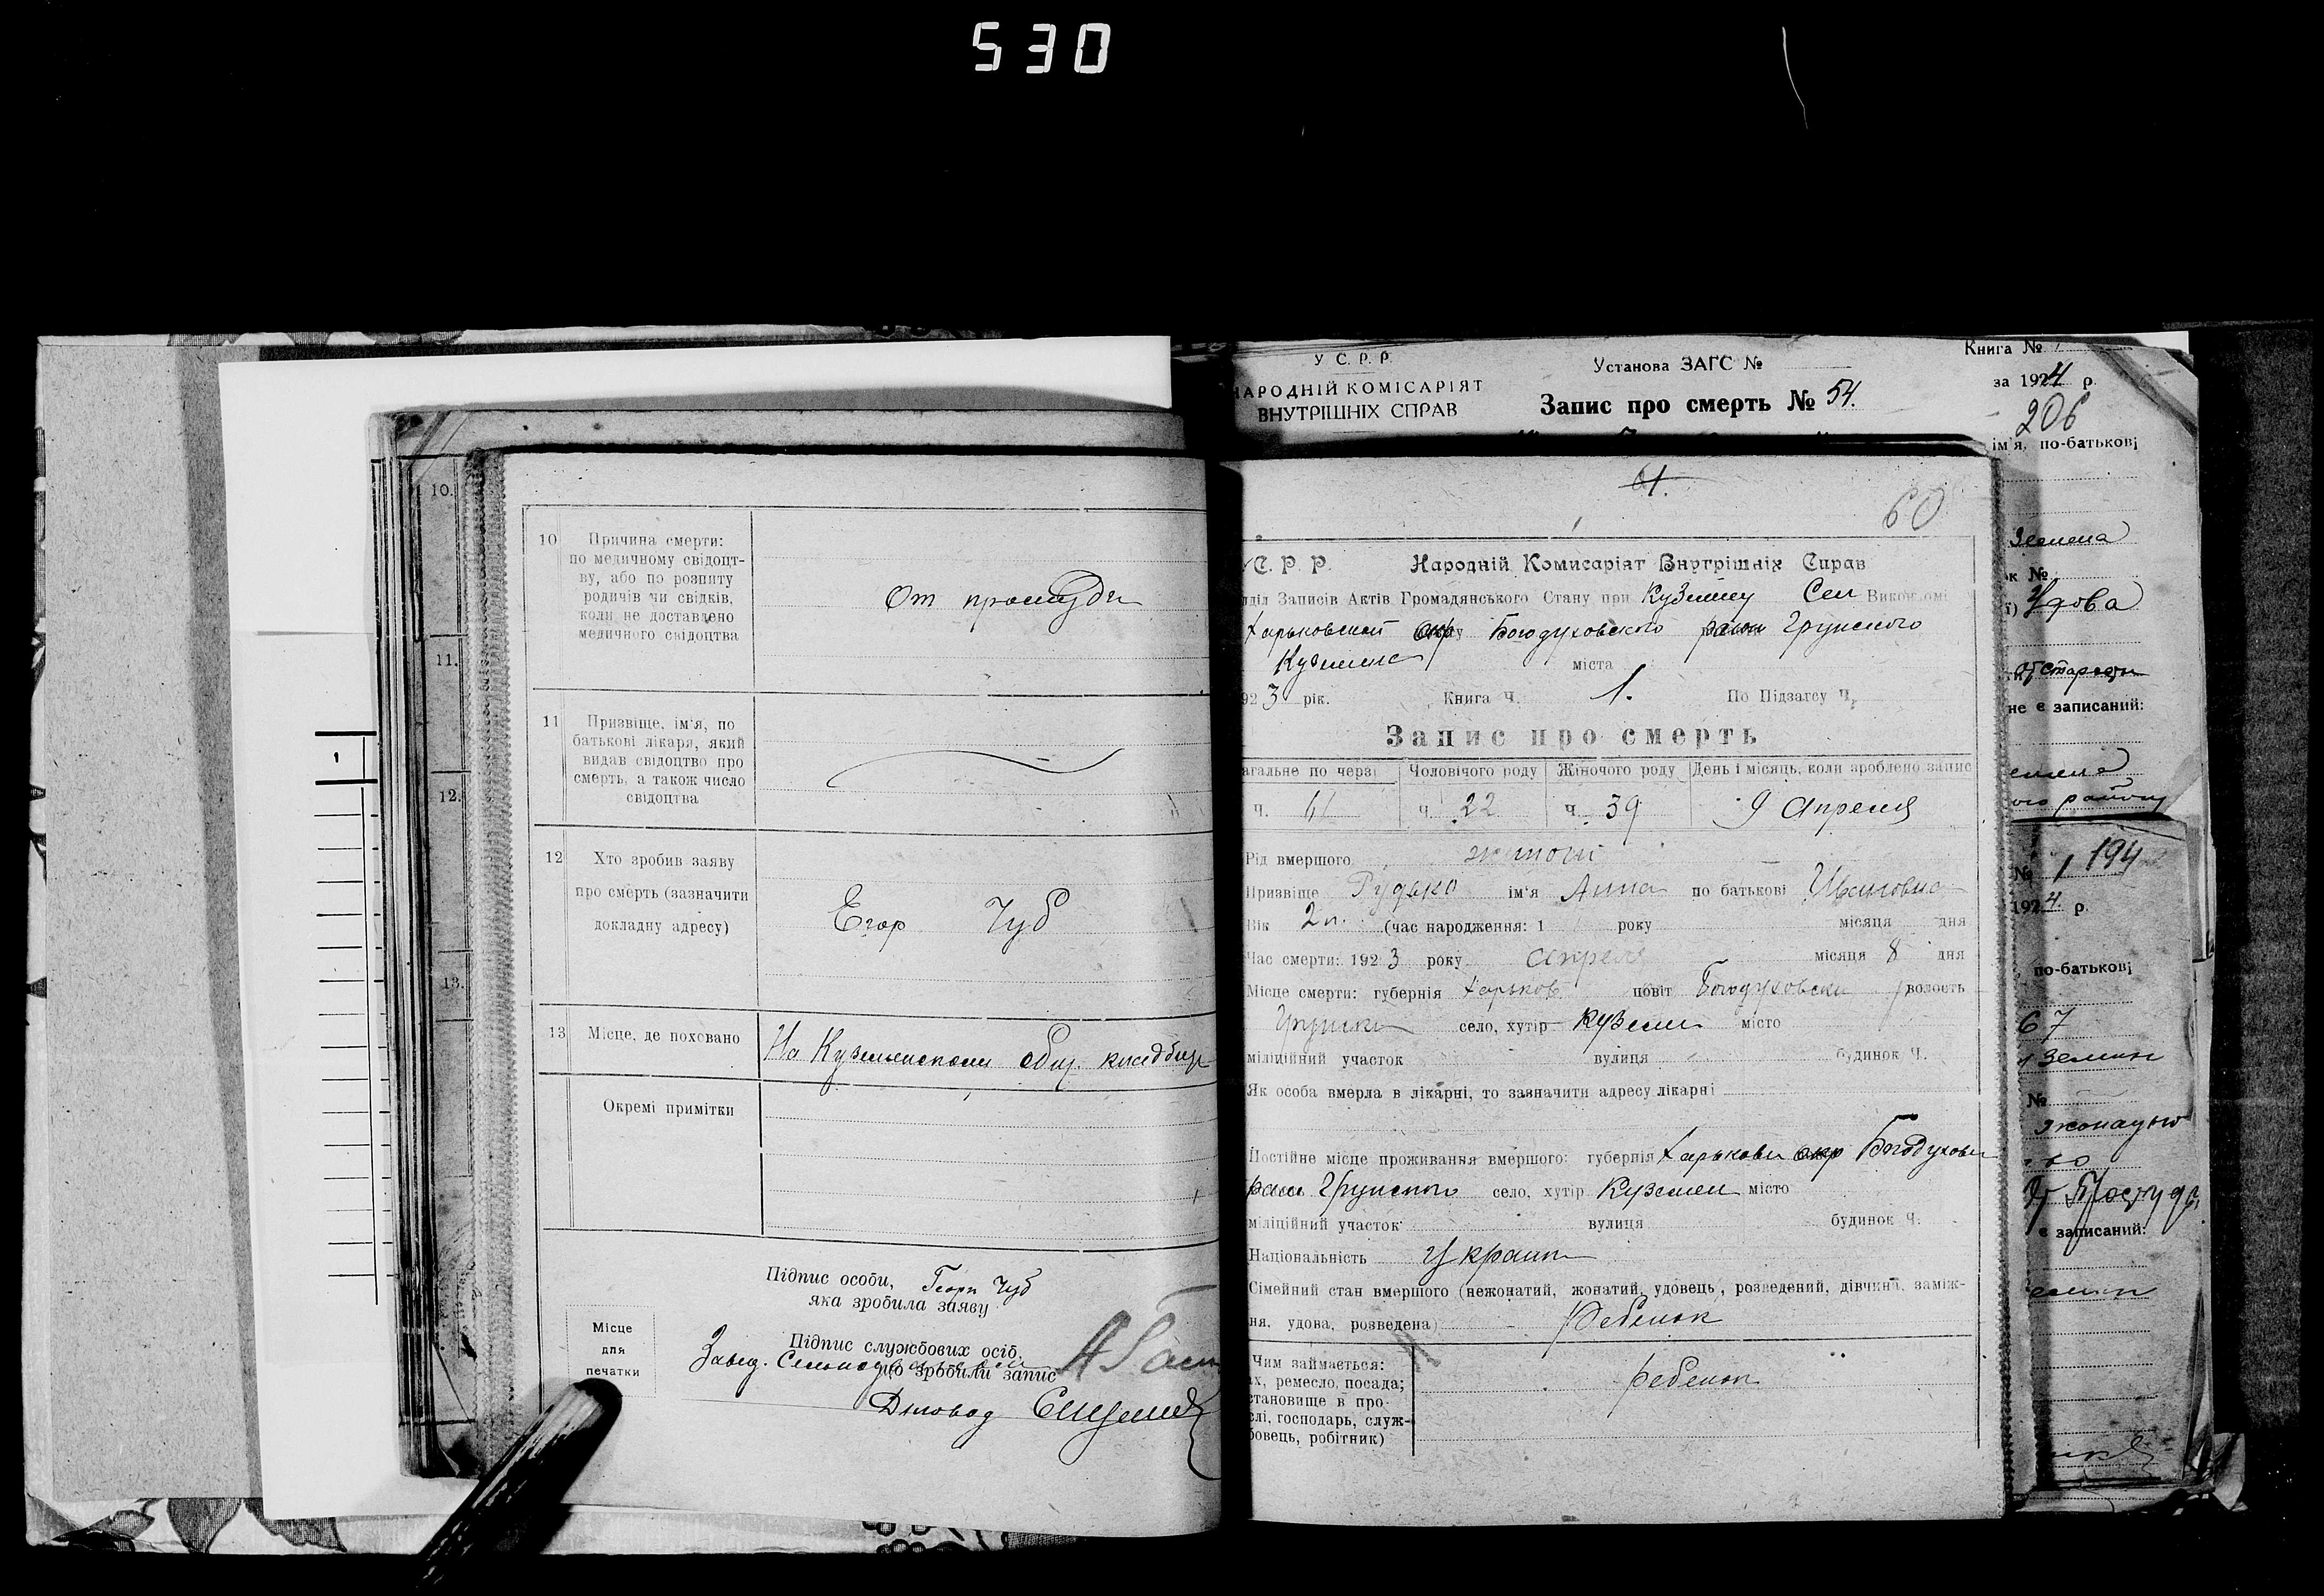 530
10.
11.
12.
13.
1
10 Причина смерти:
по медичному свідоцт-
ву, або по розпиту
родичів чи свідків,
коли не доставлено
медичного свідоцтва
От простуды
11 Призвіще, ім'я, по
батькові лікаря, який
видав свідоцтво про
смерть, а також число
свідоцтва
12 Хто зробив заяву
про смерть (зазначити
докладну адресу)
Егор Чуб
13 Місце, де поховано
На Кузьменском общ. кладбище
Окремі примітки
Підпис особи, Георг Чуб
яка зробила заяву
Місце
для
печатки
Підпис службових осіб,
Завед.
що зробили запис
Діловод
У С. Р. Р.
НАРОДНІЙ КОМІСАРІЯТ
ВНУТРІШНІХ СПРАВ
Установа ЗАГС №
Запис про смерть № 54.
Книга №
за 1924 р.
206
ім'я, по-батькові
61.
60
С. Р. Р. Народній Комисаріят Внутрішніх Справ
Записів Актів Громадянського Стану при Кузмину Сел
Харьковской окр Богодуховского район Грунского
міста
1923 рік. Книга Ч. 1. По Підзагсу Ч.
Запис про смерть
загальне по черзі Чоловічого роду Жіночого роду День і місяць, коли зроблено запис
ч. 61 ч. 22 ч. 39 9 Апреля
Рід вмершого
Призвіще Рудько ім'я Анна по батькові Ивановна
Вік 2 (час народження: 1 року місяця дня
Час смерти: 1923 року апреля місяця 8 дня
Місце смерти: губернія Харьков повіт Богодуховски волость
село, хутір Кузем місто
міліційний участок вулиця будинок Ч.
Як особа вмерла в лікарні, то зазначити адресу лікарні
Постійне місце проживання вмершого: губернія Харькови окр Богодухови
Грунского село, хутір Куземен місто
міліційний участок вулиця будинок Ч.
Національність Украин
Сімейний стан вмершого (нежонатий, жонатий, удовець, розведений, дівчина, заміж-
ня, удова, розведена) Ребенок
Чим займається:
ремесло, посада;
становище в про-
господарь, служ-
бовець, робітник)
ребенок
к №
Удова
От старости
не є записаний:
ого району
№ 1 194
1924 р.
по-батькові
67
№
От Простуды
є записаний: